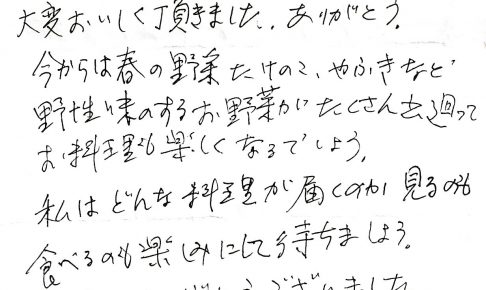 大変おいしく頂きました。ありがとう。
今からは春の野菜たけのこ、やふきなど
野性味のするお野菜がたくさん出廻って
お料理も楽しくなるでしょう。
私はどんな料理が届くのか見るのも
食べるのも楽しみにして待ちましょう。
ございました